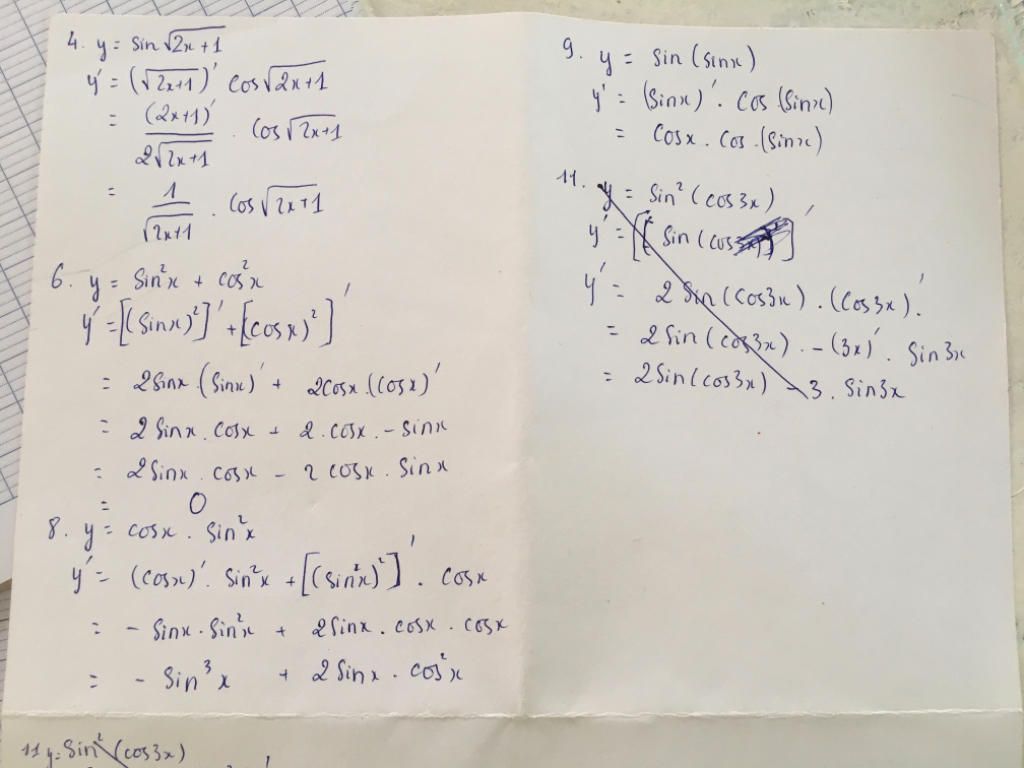 4. y = sin√(2x+1)
y' = (√(2x+1))' cos√(2x+1)
= (2x+1)' / 2√(2x+1) . cos√(2x+1)
= 1 / √(2x+1) . cos√(2x+1)
6. y = sin²x + cos²x
y' = [(sinx)²]' + [(cosx)²]'
= 2sinx.(sinx)' + 2cosx.(cosx)'
= 2sinx.cosx + 2.cosx.-sinx
= 2sinx.cosx - 2cosx.sinx
= 0
8. y = cosx . sin²x
y' = (cosx)'. sin²x + [(sin²x)²]' . cosx
= - sinx.sin²x + 2sinx.cosx.cosx
= - sin³x + 2sinx.cos²x
11 y = sin²(cos3x)
9. y = sin(sinx)
y' = (sinx)'. cos(sinx)
= cosx . cos.(sinx)
11. y = sin²(cos3x)
y' = [[² sin(cos
y' = 2sin(cos3x).(cos3x)'.
= 2sin(cos3x) . -(3x)'. sin3x
= 2sin(cos3x) - 3 . sin3x